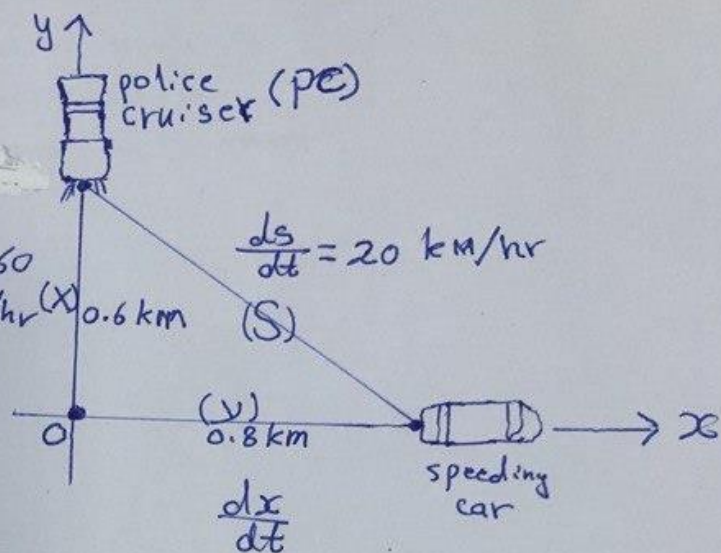 y
police (PC)
cruiser
ds/dt = 20 km/hr
60
hr (X) 0.6 km
(S)
(y)
0.8 km
O
x
speeding
car
dx/dt